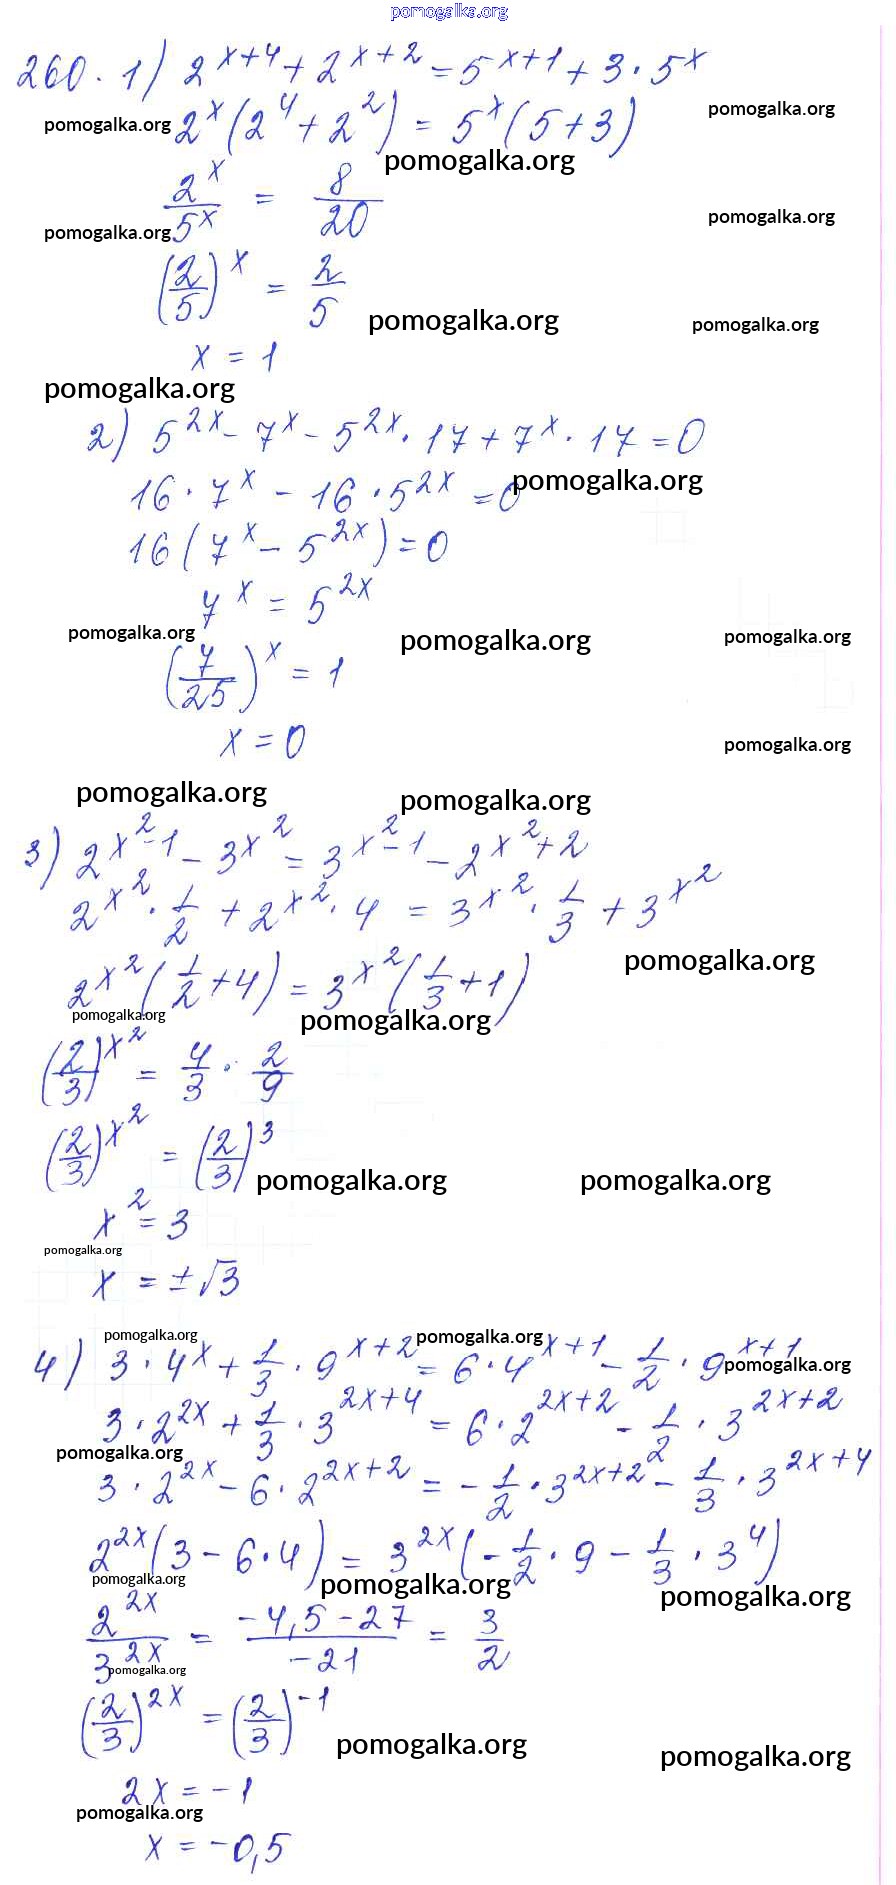 pomogalka.org
260. 1) 2^(x+4) + 2^(x+2) = 5^(x+1) + 3 · 5^x
pomogalka.org
2^x (2^4 + 2^2) = 5^x (5 + 3)
pomogalka.org
pomogalka.org
2^x / 5^x = 8/20
pomogalka.org
pomogalka.org
(2/5)^x = 2/5
pomogalka.org
pomogalka.org
x = 1
pomogalka.org
2) 5^(2x) - 7^x - 5^(2x) · 17 + 7^x · 17 = 0
16 · 7^x - 16 · 5^(2x) = 0
pomogalka.org
16 (7^x - 5^(2x)) = 0
7^x = 5^(2x)
pomogalka.org
pomogalka.org
pomogalka.org
(7/25)^x = 1
x = 0
pomogalka.org
pomogalka.org
pomogalka.org
3) 2^(x^2-1) - 3^(x^2) = 3^(x^2-1) - 2^(x^2+2)
2^(x^2) · 1/2 + 2^(x^2) · 4 = 3^(x^2) · 1/3 + 3^(x^2)
pomogalka.org
2^(x^2) (1/2 + 4) = 3^(x^2) (1/3 + 1)
pomogalka.org
pomogalka.org
(2/3)^(x^2) = 4/3 · 2/9
(2/3)^(x^2) = (2/3)^3
pomogalka.org
pomogalka.org
x^2 = 3
pomogalka.org
x = ±√3
pomogalka.org
pomogalka.org
4) 3 · 4^x + 1/3 · 9^(x+2) = 6 · 4^(x+1) - 1/2 · 9^(x+1)
pomogalka.org
3 · 2^(2x) + 1/3 · 3^(2x+4) = 6 · 2^(2x+2) - 1/2 · 3^(2x+2)
pomogalka.org
3 · 2^(2x) - 6 · 2^(2x+2) = - 1/2 · 3^(2x+2) - 1/3 · 3^(2x+4)
2^(2x) (3 - 6 · 4) = 3^(2x) (- 1/2 · 9 - 1/3 · 3^4)
pomogalka.org
pomogalka.org
pomogalka.org
2^(2x) / 3^(2x) = (-4,5 - 27) / -21 = 3/2
pomogalka.org
(2/3)^(2x) = (2/3)^(-1)
pomogalka.org
pomogalka.org
2x = -1
pomogalka.org
x = -0,5